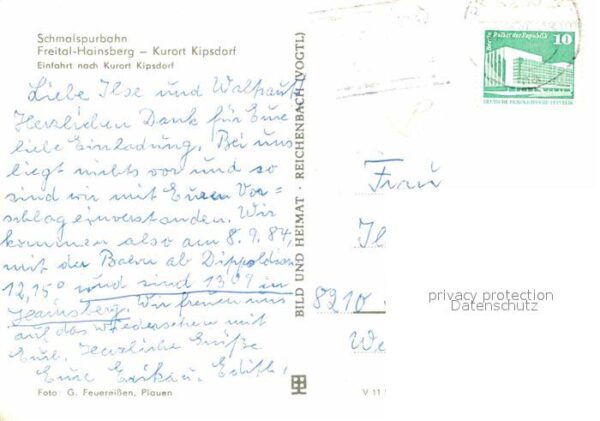 Schmalspurbahn
Freital-Hainsberg – Kurort Kipsdorf
Einfahrt nach Kurort Kipsdorf
Liebe Ilse und Waltraut,
Herzlichen Dank für Eure
liebe Einladung. Bei uns
liegt nichts vor und so
sind wir mit Euren Vor=
schlag einverstanden. Wir
kommen also am 8.9.84,
mit der Bahn ab
12,15° und sind 13°9 in
Hainsberg. Wir freuen uns
auf das Wiedersehen mit
Euch. Herzliche Grüße
Eure Erika u. Edith!
Foto: G. Feuereißen, Plauen
BILD UND HEIMAT · REICHENBACH (VOGTL)
V 11
Palast der Republik
10
DEUTSCHE DEMOKRATISCHE REPUBLIK
Frau
Il
8210
We
privacy protection
Datenschutz